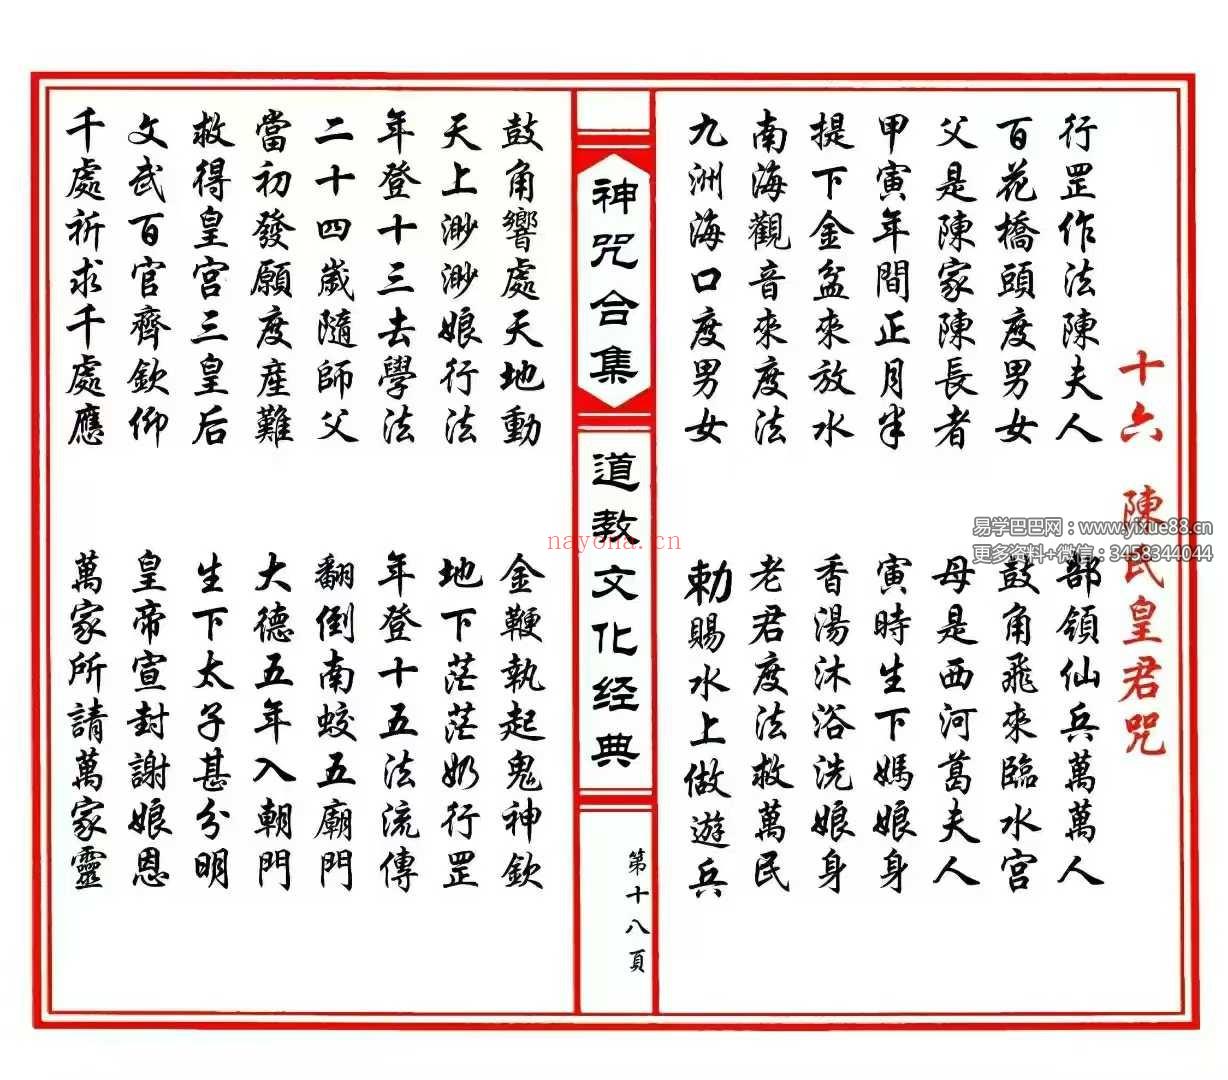 十六 陳氏皇君咒
行罡作法陳夫人 部領仙兵萬萬人
百花橋頭度男女 鼓角飛來臨水宮
父是陳家陳長者 母是西河葛夫人
甲寅年間正月半 寅時生下媽娘身
提下金盆來放水 香湯沐浴洗娘身
南海觀音來度法 老君度法救萬民
九洲海口度男女 勅賜水上做遊兵
神咒合集
道教文化经典
第十八頁
鼓角響處天地動 金鞭執起鬼神欽
天上渺渺娘行法 地下茫茫奶行罡
年登十三去學法 年登十五法流傳
二十四歲隨師父 翻倒南蛟五廟門
當初發願度産難 大德五年入朝門
救得皇宫三皇后 生下太子甚分明
文武百官齊欽仰 皇帝宣封謝娘恩
千處祈求千處應 萬家所請萬家靈
易学巴巴网：www.yixue88.cn
更多资料+微信：3458344044
nayona.cn